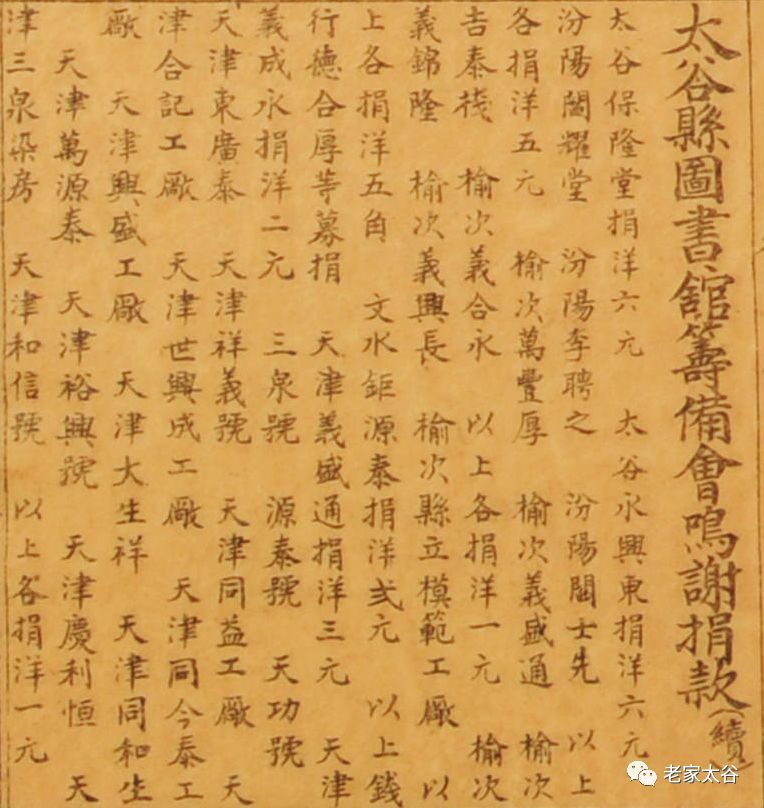 太谷縣圖書舘籌備會鳴謝捐款(續)
太谷保隆堂捐洋六元　太谷永興東捐洋六元
汾陽閻耀堂　汾陽李聘之　汾陽閻士先　以上
各捐洋五元　榆次萬豐厚　榆次義盛通　榆次
吉泰棧　榆次義合永　以上各捐洋一元　榆次
義錦隆　榆次義興長　榆次縣立模範工廠　以
上各捐洋五角　文水鉅源泰捐洋弍元　以上錢
行德合厚等募捐　天津義盛通捐洋三元　天津
義成永捐洋二元　三泉號　源泰號　天功號
天津東廣泰　天津祥義號　天津同益工廠　天
津合記工廠　天津世興成工廠　天津同今泰工
廠　天津興盛工廠　天津大生祥　天津同和生
天津萬源泰　天津裕興號　天津慶利恒　天
津三泉染房　天津和信號　以上各捐洋一元
老家太谷